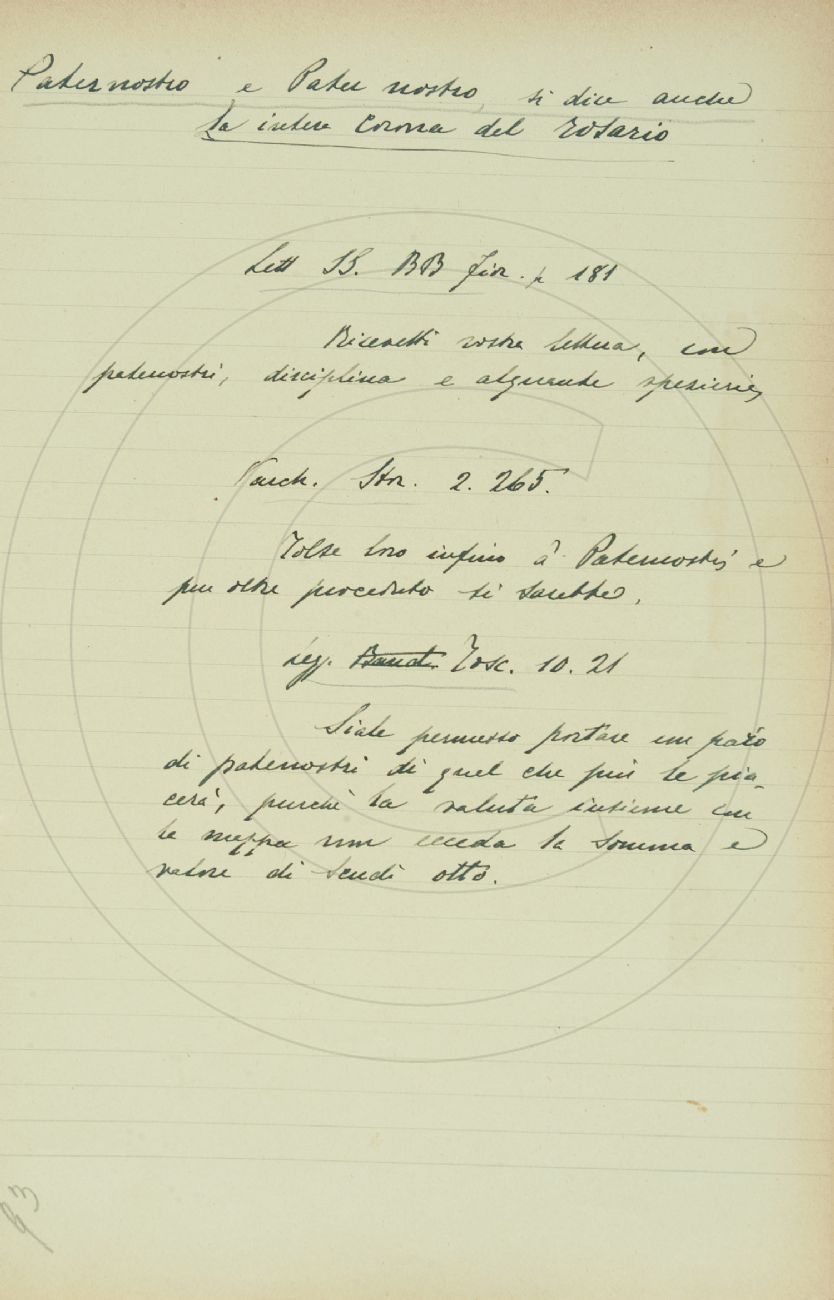 Paternostro e Pater nostro, si dice anche
la intera Corona del rosario
Lett SS. BB Fior. p 181
Ricevetti vostra lettera, con
paternostri, disciplina e alquante spezierie,
Varch. Stor. 2. 265.
Tolse loro infino a' Paternostri e
più oltre proceduto si sarebbe.
Leg. Band. Tosc. 10. 21
Siale permesso portare un paio
di paternostri di quel che più le pia-
cerà, purchè la valuta insieme con
la nappa non ecceda la somma e
valore di scudi otto.
93